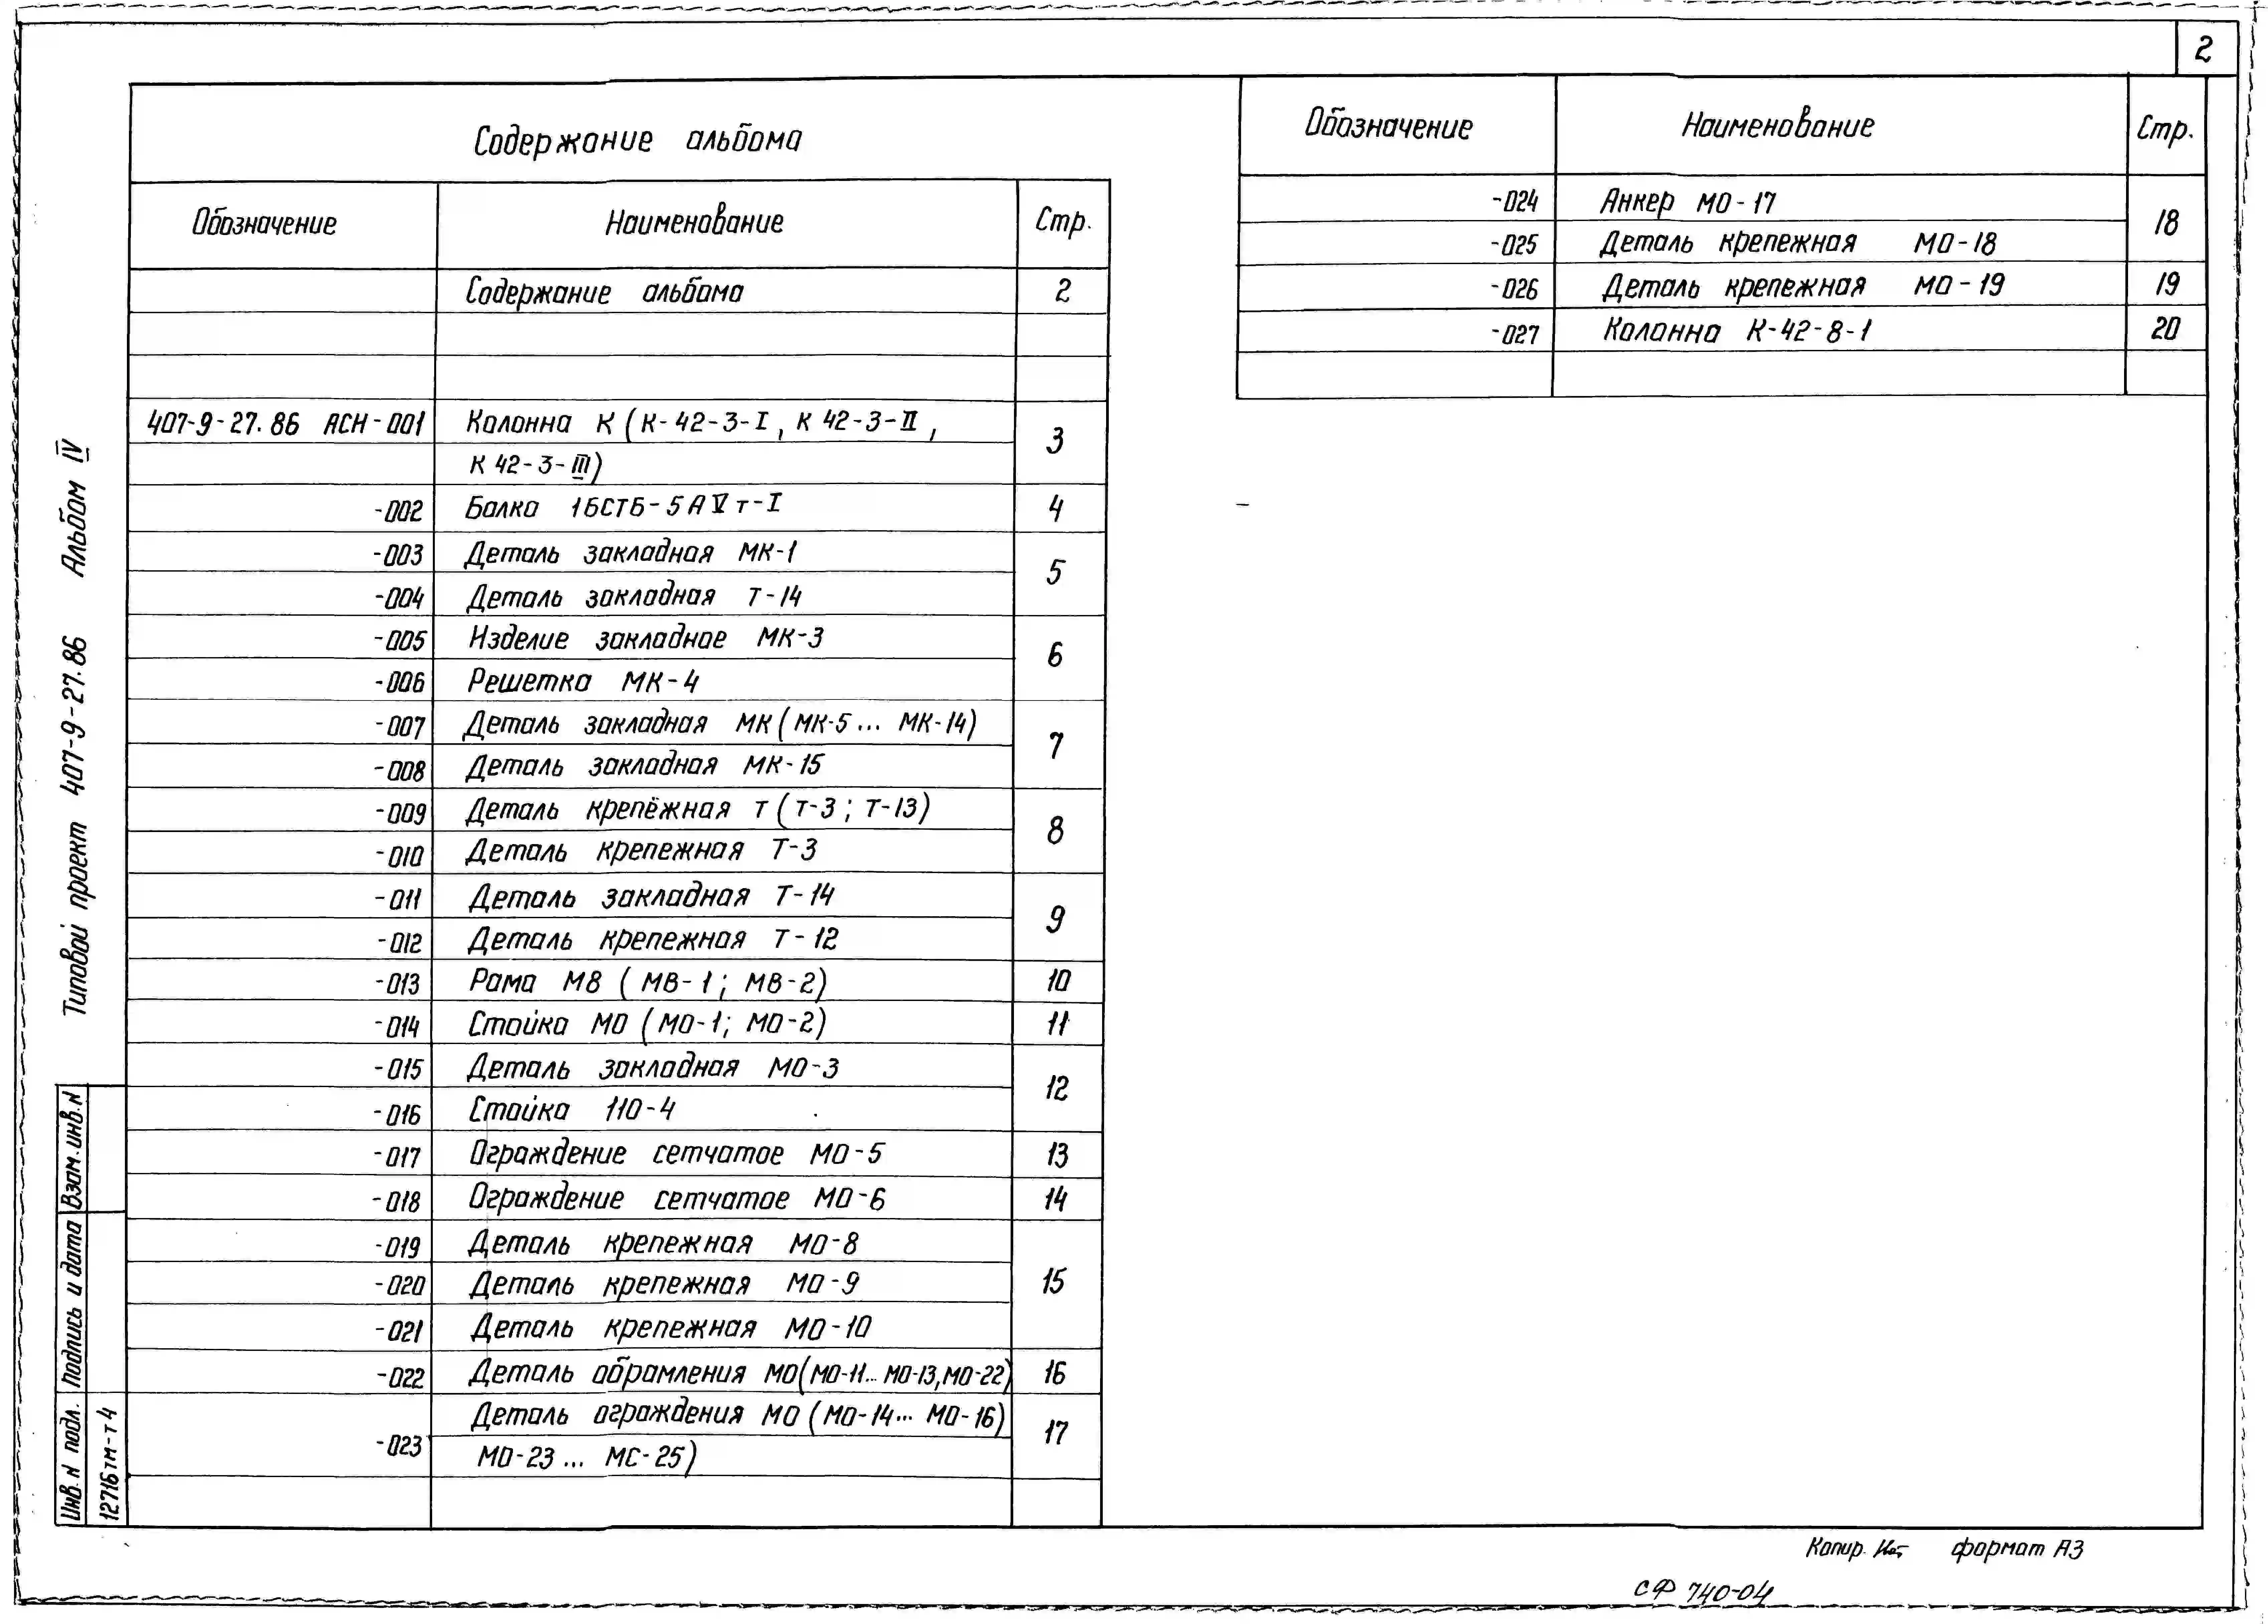 2
Содержание альбома
Обозначение Наименование Стр.
Содержание альбома 2
407-9-27.86 АСН-001 Колонна К (К-42-3-I, К 42-3-II, 3
К 42-3-III)
-002 Балка 1БСТ6-5АVт-I 4
-003 Деталь закладная МК-1 5
-004 Деталь закладная Т-14
-005 Изделие закладное МК-3 6
-006 Решетка МК-4
-007 Деталь закладная МК (МК-5... МК-14) 7
-008 Деталь закладная МК-15
-009 Деталь крепёжная Т (Т-3; Т-13) 8
-010 Деталь крепежная Т-3
-011 Деталь закладная Т-14 9
-012 Деталь крепежная Т-12
-013 Рама М8 (МВ-1; МВ-2) 10
-014 Стойка МО (МО-1; МО-2) 11
-015 Деталь закладная МО-3 12
-016 Стойка 110-4
-017 Ограждение сетчатое МО-5 13
-018 Ограждение сетчатое МО-6 14
-019 Деталь крепежная МО-8 15
-020 Деталь крепежная МО-9
-021 Деталь крепежная МО-10
-022 Деталь обрамления МО(МО-11... МО-13,МО-22) 16
-023 Деталь ограждения МО (МО-14... МО-16) 17
МО-23... МС-25)
Обозначение Наименование Стр.
-024 Анкер МО-17 18
-025 Деталь крепежная МО-18
-026 Деталь крепежная МО-19 19
-027 Колонна К-42-8-1 20
Типовой проект 407-9-27.86 Альбом IV
Взам.инв.N
Подпись и дата
Инв.N подл.
12716тм-т4
Копир. формат А3
СФ 740-04